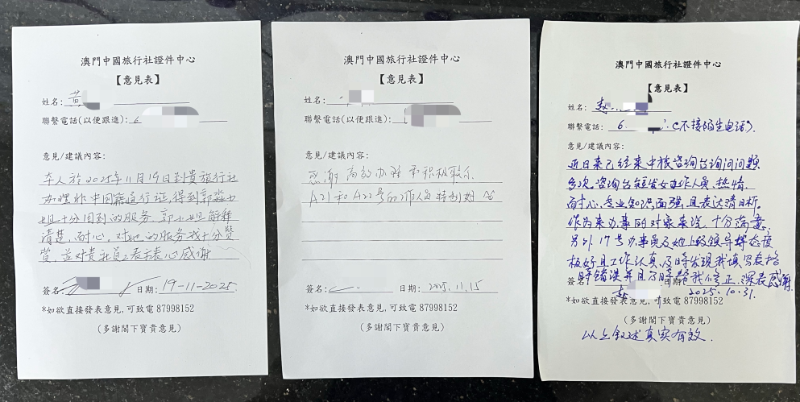 澳門中國旅行社證件中心
【意見表】
姓名：黄
聯繫電話(以便跟進)：6
意見/建議內容：
本人於2025年11月19日到貴旅行社
办理
中国
通行证，得到郭
小
姐十分周到的服务，郭小姐解释
清楚，耐心，对她的服务我十分赞
賞，並对貴社員工表示衷心感謝
簽名：
日期：19-11-2025
*如欲直接發表意見，可致電 87998152
(多謝閣下寶貴意見)
澳門中國旅行社證件中心
【意見表】
姓名：
聯繫電話(以便跟進)：
意見/建議內容：
感謝高效办理
A21和A22号的工作人员
簽名：
日期：2025.11.15
*如欲直接發表意見，可致電 87998152
(多謝閣下寶貴意見)
澳門中國旅行社證件中心
【意見表】
姓名：赵
聯繫電話：6 (不接陌生电话)
意見/建議內容：
近日来已经来中旅咨询台询问问题
多次，咨询台短发女工作人员，热情，
耐心，专业知识面强，且表达清晰，
作为来办事的对象来说，十分满意，
另外17号办事员及她上级领导
态度
极好且工作认真，及时发现我填写表格
错误并且及时替我修正，深表感谢
簽名：赵
2025.10.31.
*如欲直接發表意見，可致電 87998152
(多謝閣下寶貴意見)
以上叙述真实有效.